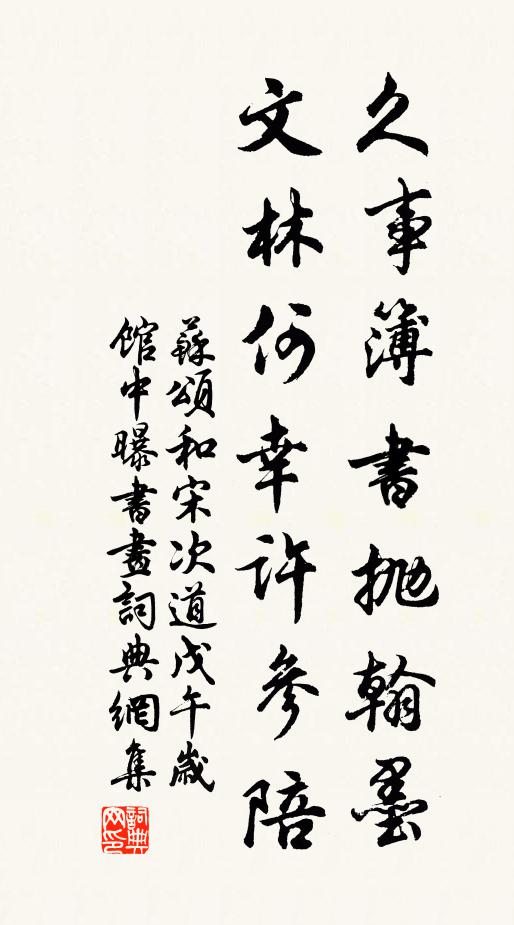 久事簿書抛翰墨
文林何幸許參陪
蘇頌和宋次道戊午歲
館中曝書畫詞典網集
詞典
网印